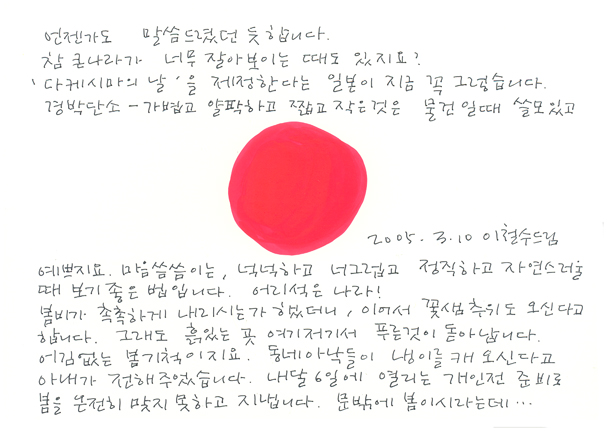 언젠가도 말씀드렸던 듯 합니다.
참 큰나라가 너무 잘아보이는 때도 있지요?
'다케시마의 날'을 제정한다는 일본이 지금 꼭 그렇습니다.
경박단소 - 가볍고 얄팍하고 짧고 작은것은 물건일때 쓸모있고
2005. 3. 10 이철수드림
예쁘지요. 마음씀씀이는, 넉넉하고 너그럽고 정직하고 자연스러울
때 보기 좋은 법입니다. 어리석은 나라!
봄비가 촉촉하게 내리시는가 했더니, 이어서 꽃샘추위도 오신다고
합니다. 그래도 흙있는 곳 여기저기서 푸른것이 돋아납니다.
어김없는 봄기척이지요. 동네아낙들이 냉이를 캐 오신다고
아내가 전해주었습니다. 내달 6일에 열리는 개인전 준비로
봄을 온전히 맞지 못하고 지냅니다. 문밖에 봄이시라는데…